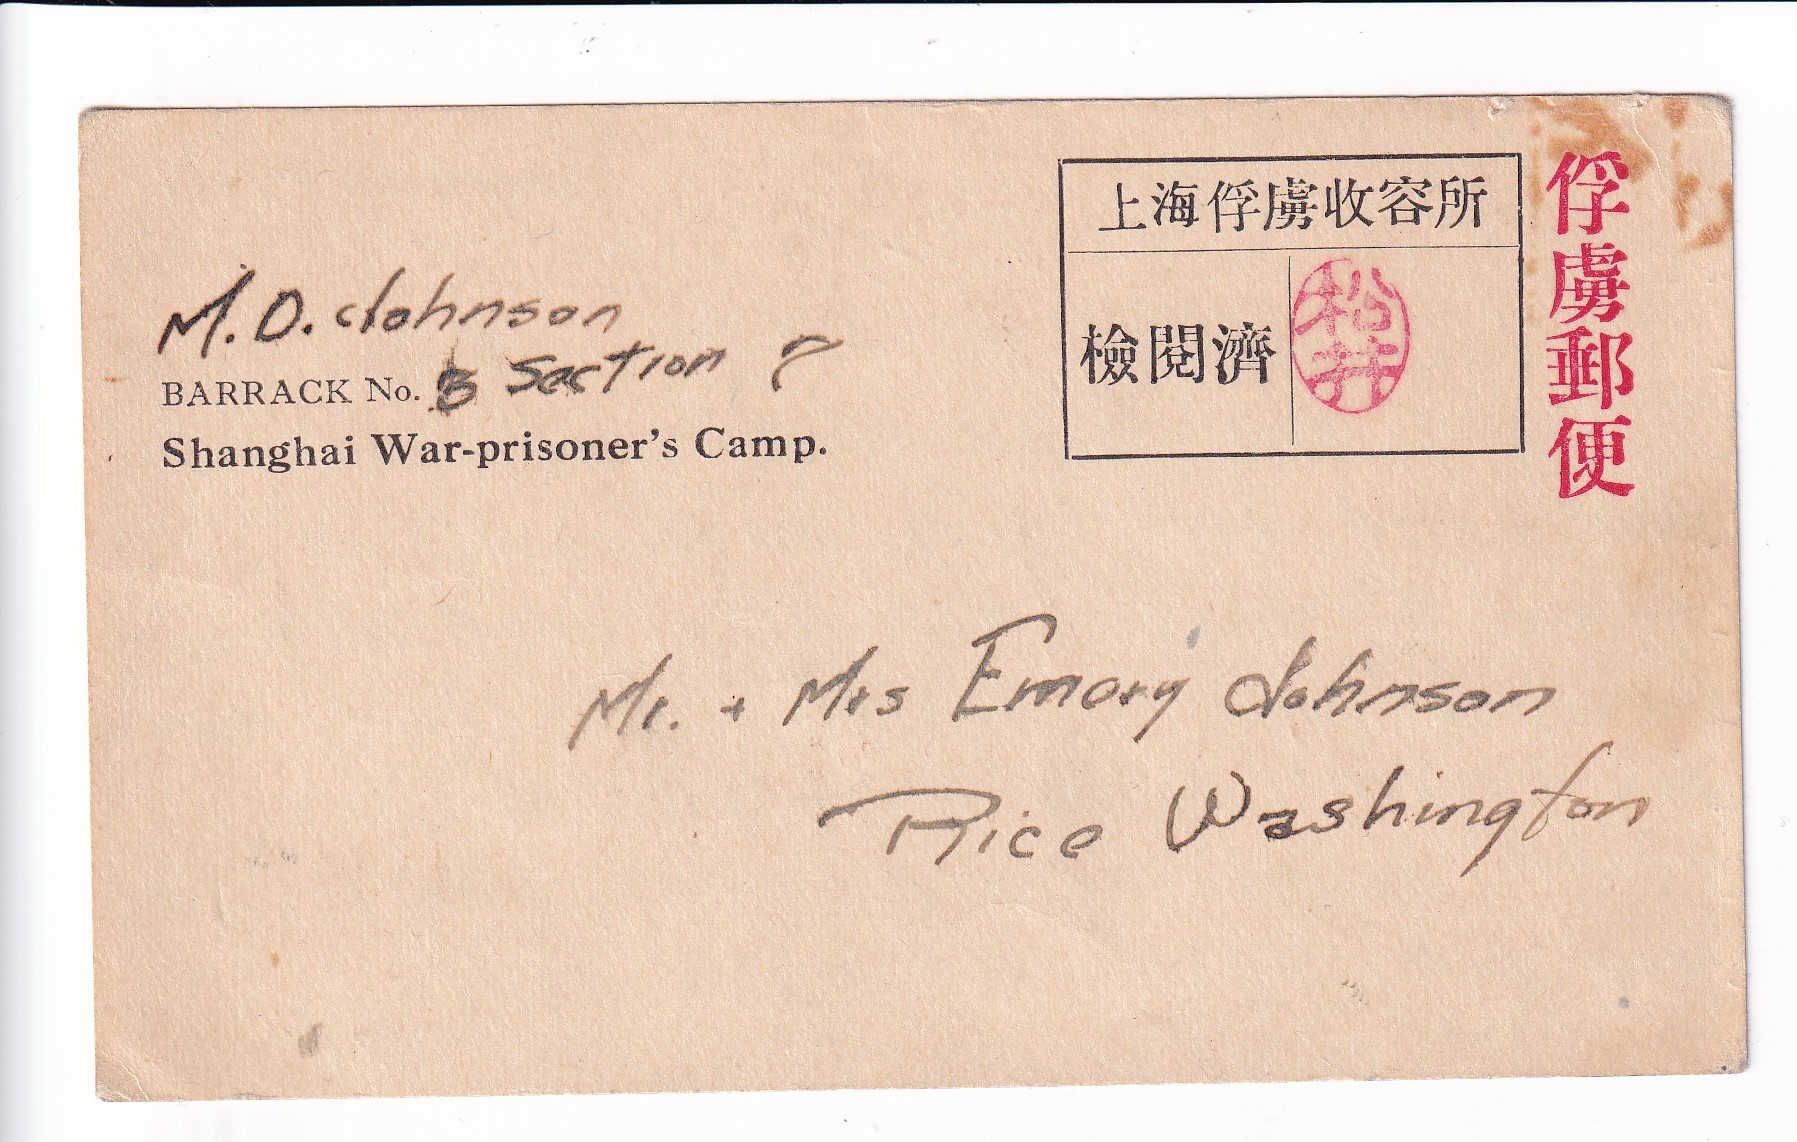 M.D. Johnson
BARRACK No. 3 Section
Shanghai War-prisoner's Camp.
上海俘虜收容所
檢閱濟
松井
俘虜郵便
Mr. + Mrs Emory Johnson
Rice Washington